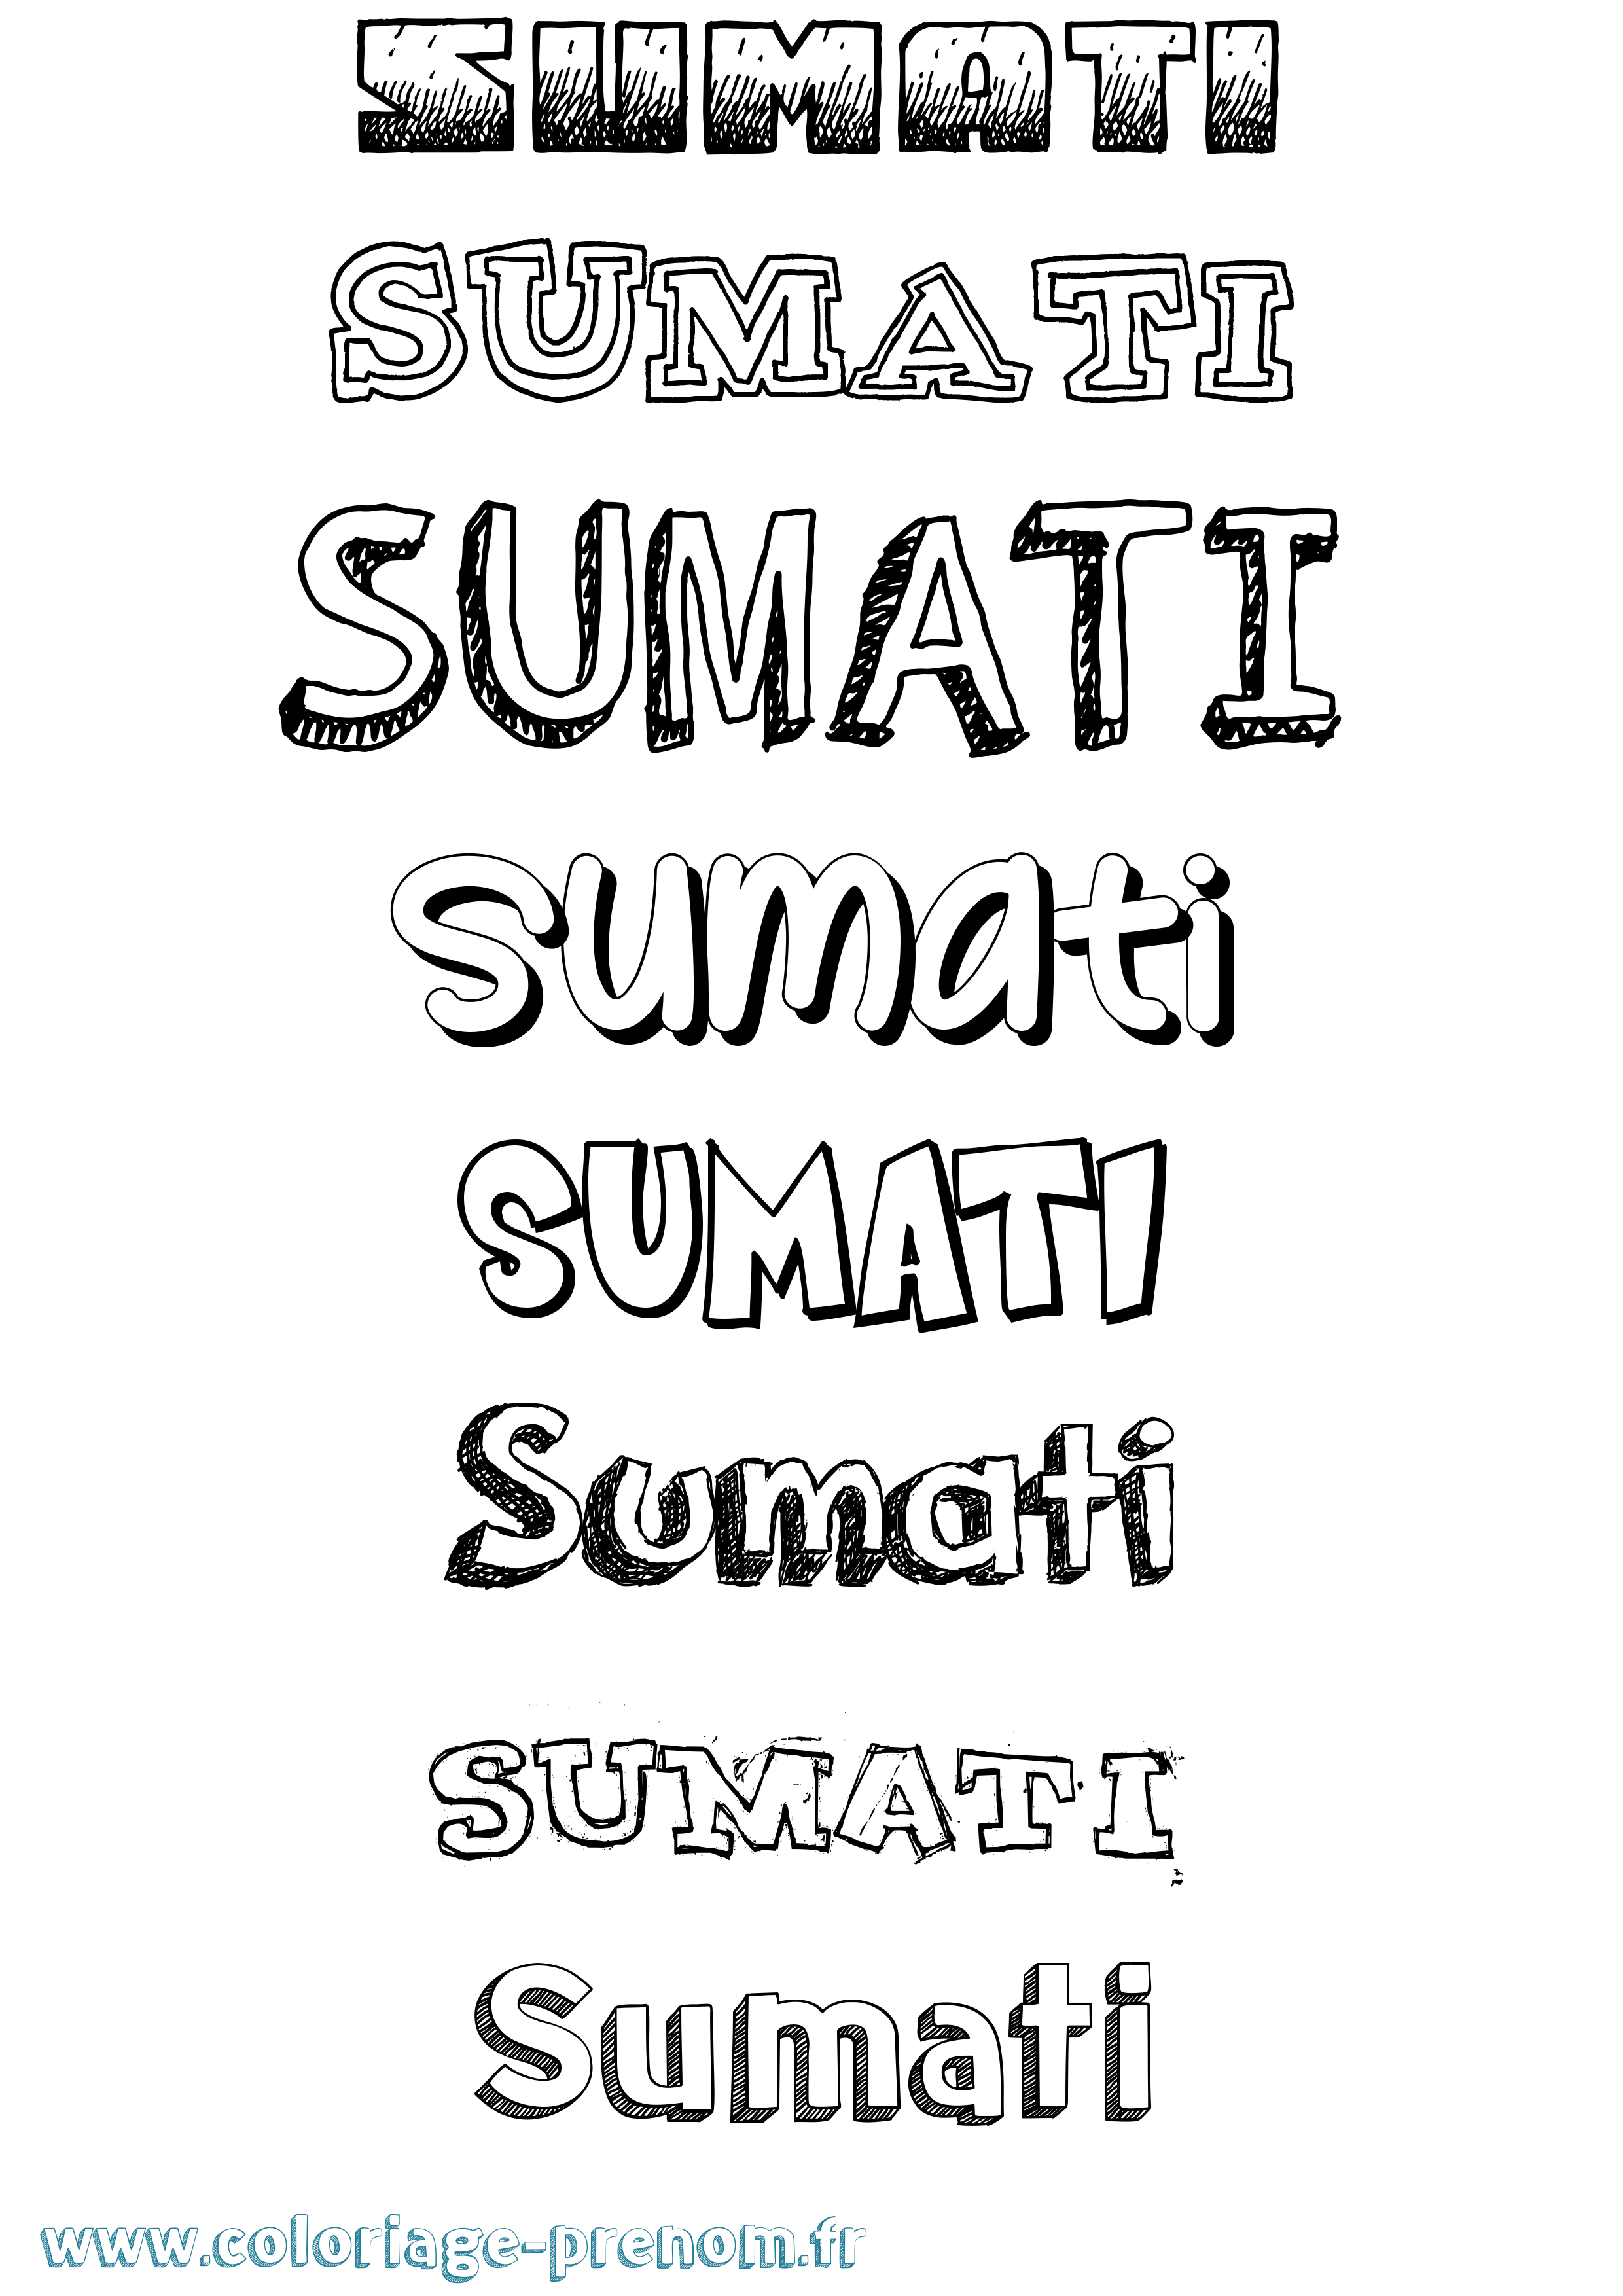 SUMATI
SUMATI
SUMATI
Sumati
SUMATI
Sumati
SUMATI
Sumati
www.coloriage-prenom.fr